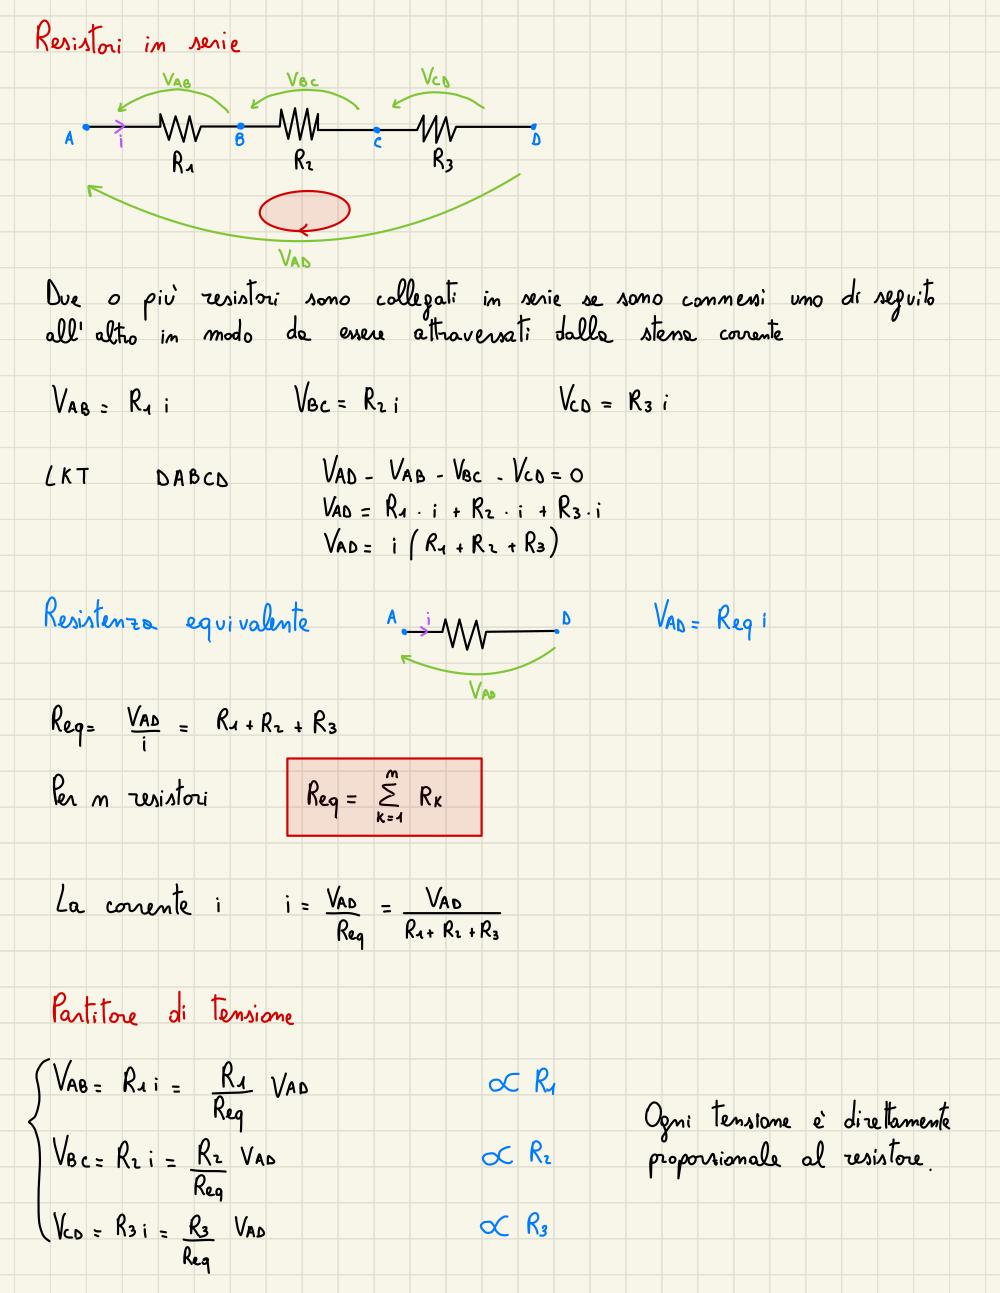 Resistori in serie
VAB VBC VCD
A i B C D
R1 R2 R3
VAD
Due o più resistori sono collegati in serie se sono connessi uno di seguito
all'altro in modo da essere attraversati dalla stessa corrente
VAB = R1 i VBC = R2 i VCD = R3 i
LKT DABCD VAD - VAB - VBC - VCD = 0
VAD = R1 · i + R2 · i + R3 · i
VAD = i (R1 + R2 + R3)
Resistenza equivalente A i D VAD = Req i
VAD
Req = VAD/i = R1 + R2 + R3
Per n resistori Req = ∑ k=1 n RK
La corrente i i = VAD/Req = VAD/(R1 + R2 + R3)
Partitore di tensione
VAB = R1 i = R1/Req VAD ∝ R1
VBC = R2 i = R2/Req VAD ∝ R2
VCD = R3 i = R3/Req VAD ∝ R3
Ogni tensione è direttamente
proporsionale al resistore.